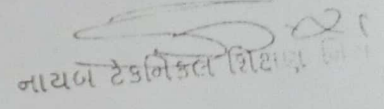 નાયબ ટેકનિકલ શિક્ષણ